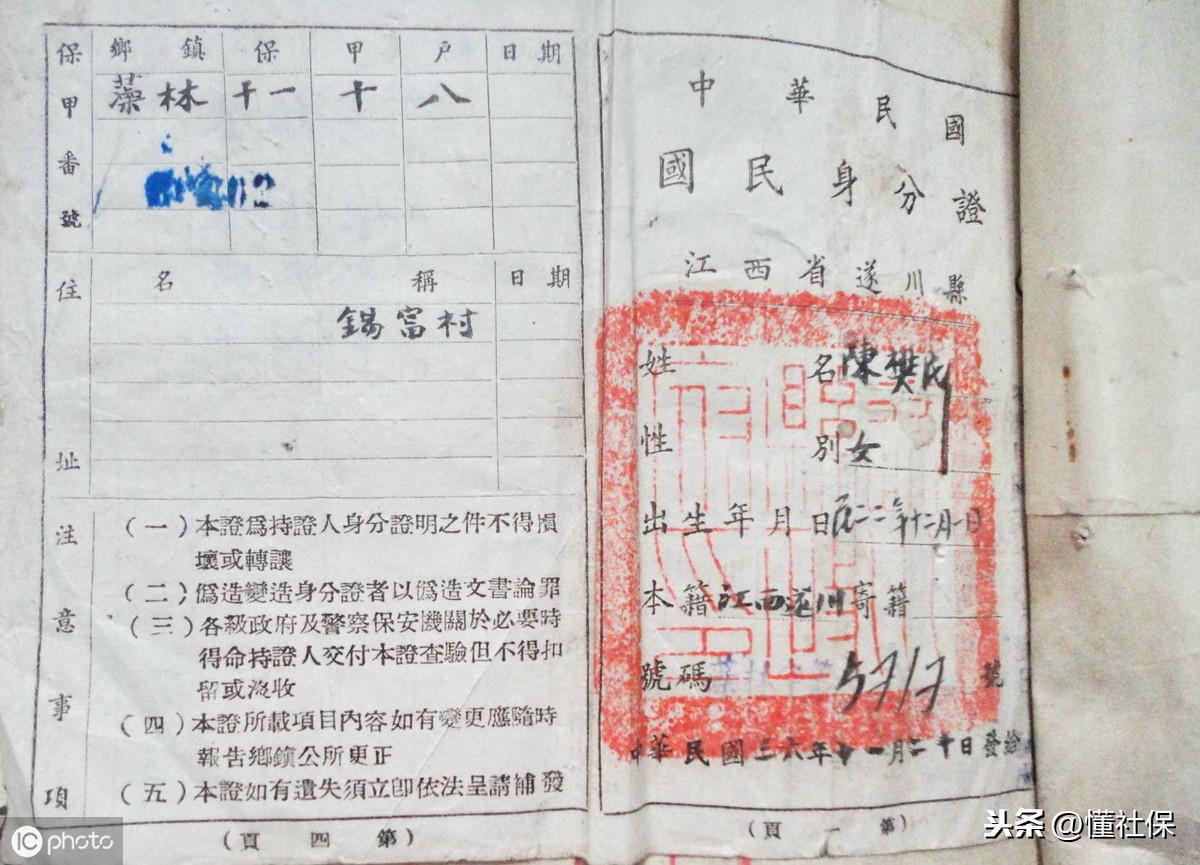 保甲番號
鄉鎮 保 甲 戶 日期
藻林 十一 十 八
住址
名稱 日期
鍚富村
注意事項
(一)本證爲持證人身分證明之件不得損
壞或轉讓
(二)僞造變造身分證者以僞造文書論罪
(三)各級政府及警察保安機關於必要時
得命持證人交付本證查驗但不得扣
留或沒收
(四)本證所載項目內容如有變更應隨時
報告鄉鎮公所更正
(五)本證如有遺失須立卽依法呈請補發
(頁四第)
中華民國
國民身分證
江西省遂川縣
姓名陳樊氏
性別女
出生年月日民二二年十二月一日
本籍江西遂川寄籍
號碼 5717 號
中華民國三六年十一月二十日發給
(頁一第)
iC photo
头条 @懂社保